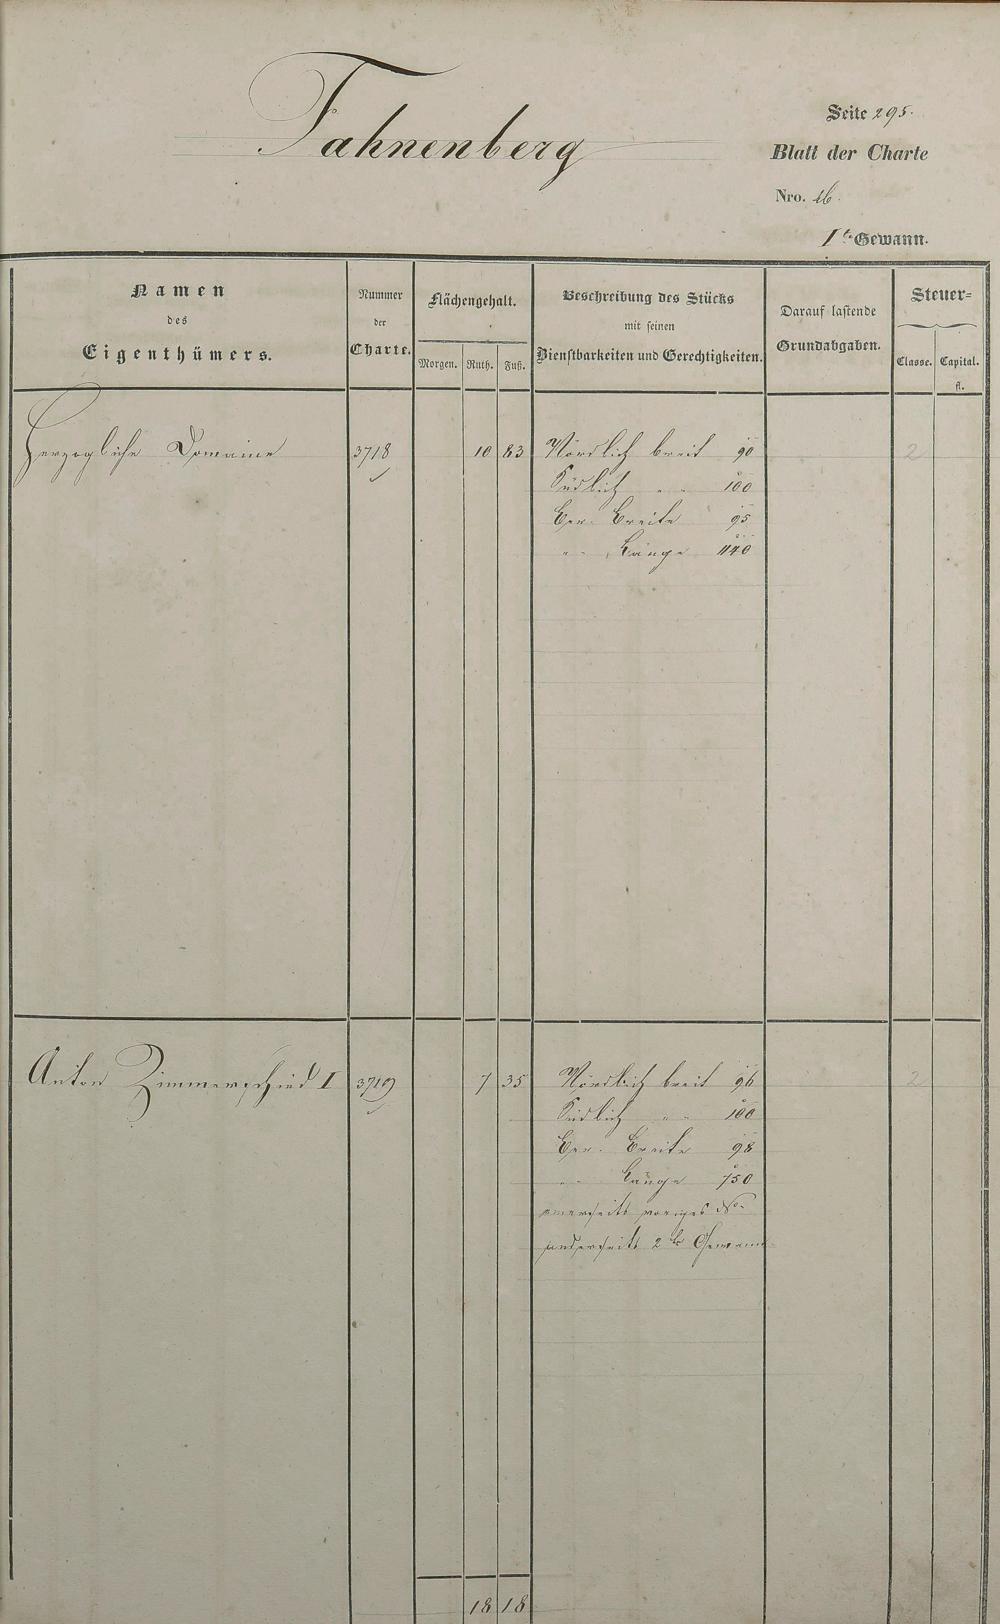 Fahnenberg
Seite 295.
Blatt der Charte
Nro. 16.
1te Gewann.
Namen
des
Eigenthümers.
Nummer
der
Charte.
Flächengehalt.
Morgen. Ruth. Fuß.
Beschreibung des Stücks
mit seinen
Dienstbarkeiten und Gerechtigkeiten.
Darauf lastende
Grundabgaben.
Steuer=
Classe. Capital.
fl.
Herzogliche Domaine 3718 10 83 Nördlich breit 90 2
Südlich " " 100
Ger. Breite 95
" " Länge 1140
Anton Zimmerschied I 3719 7 35 Nördlich breit 96 2
Südlich " " 100
Ger. Breite 98
" " Länge 750
einerseits voriges No
anderseits 2te Gewann
18 18